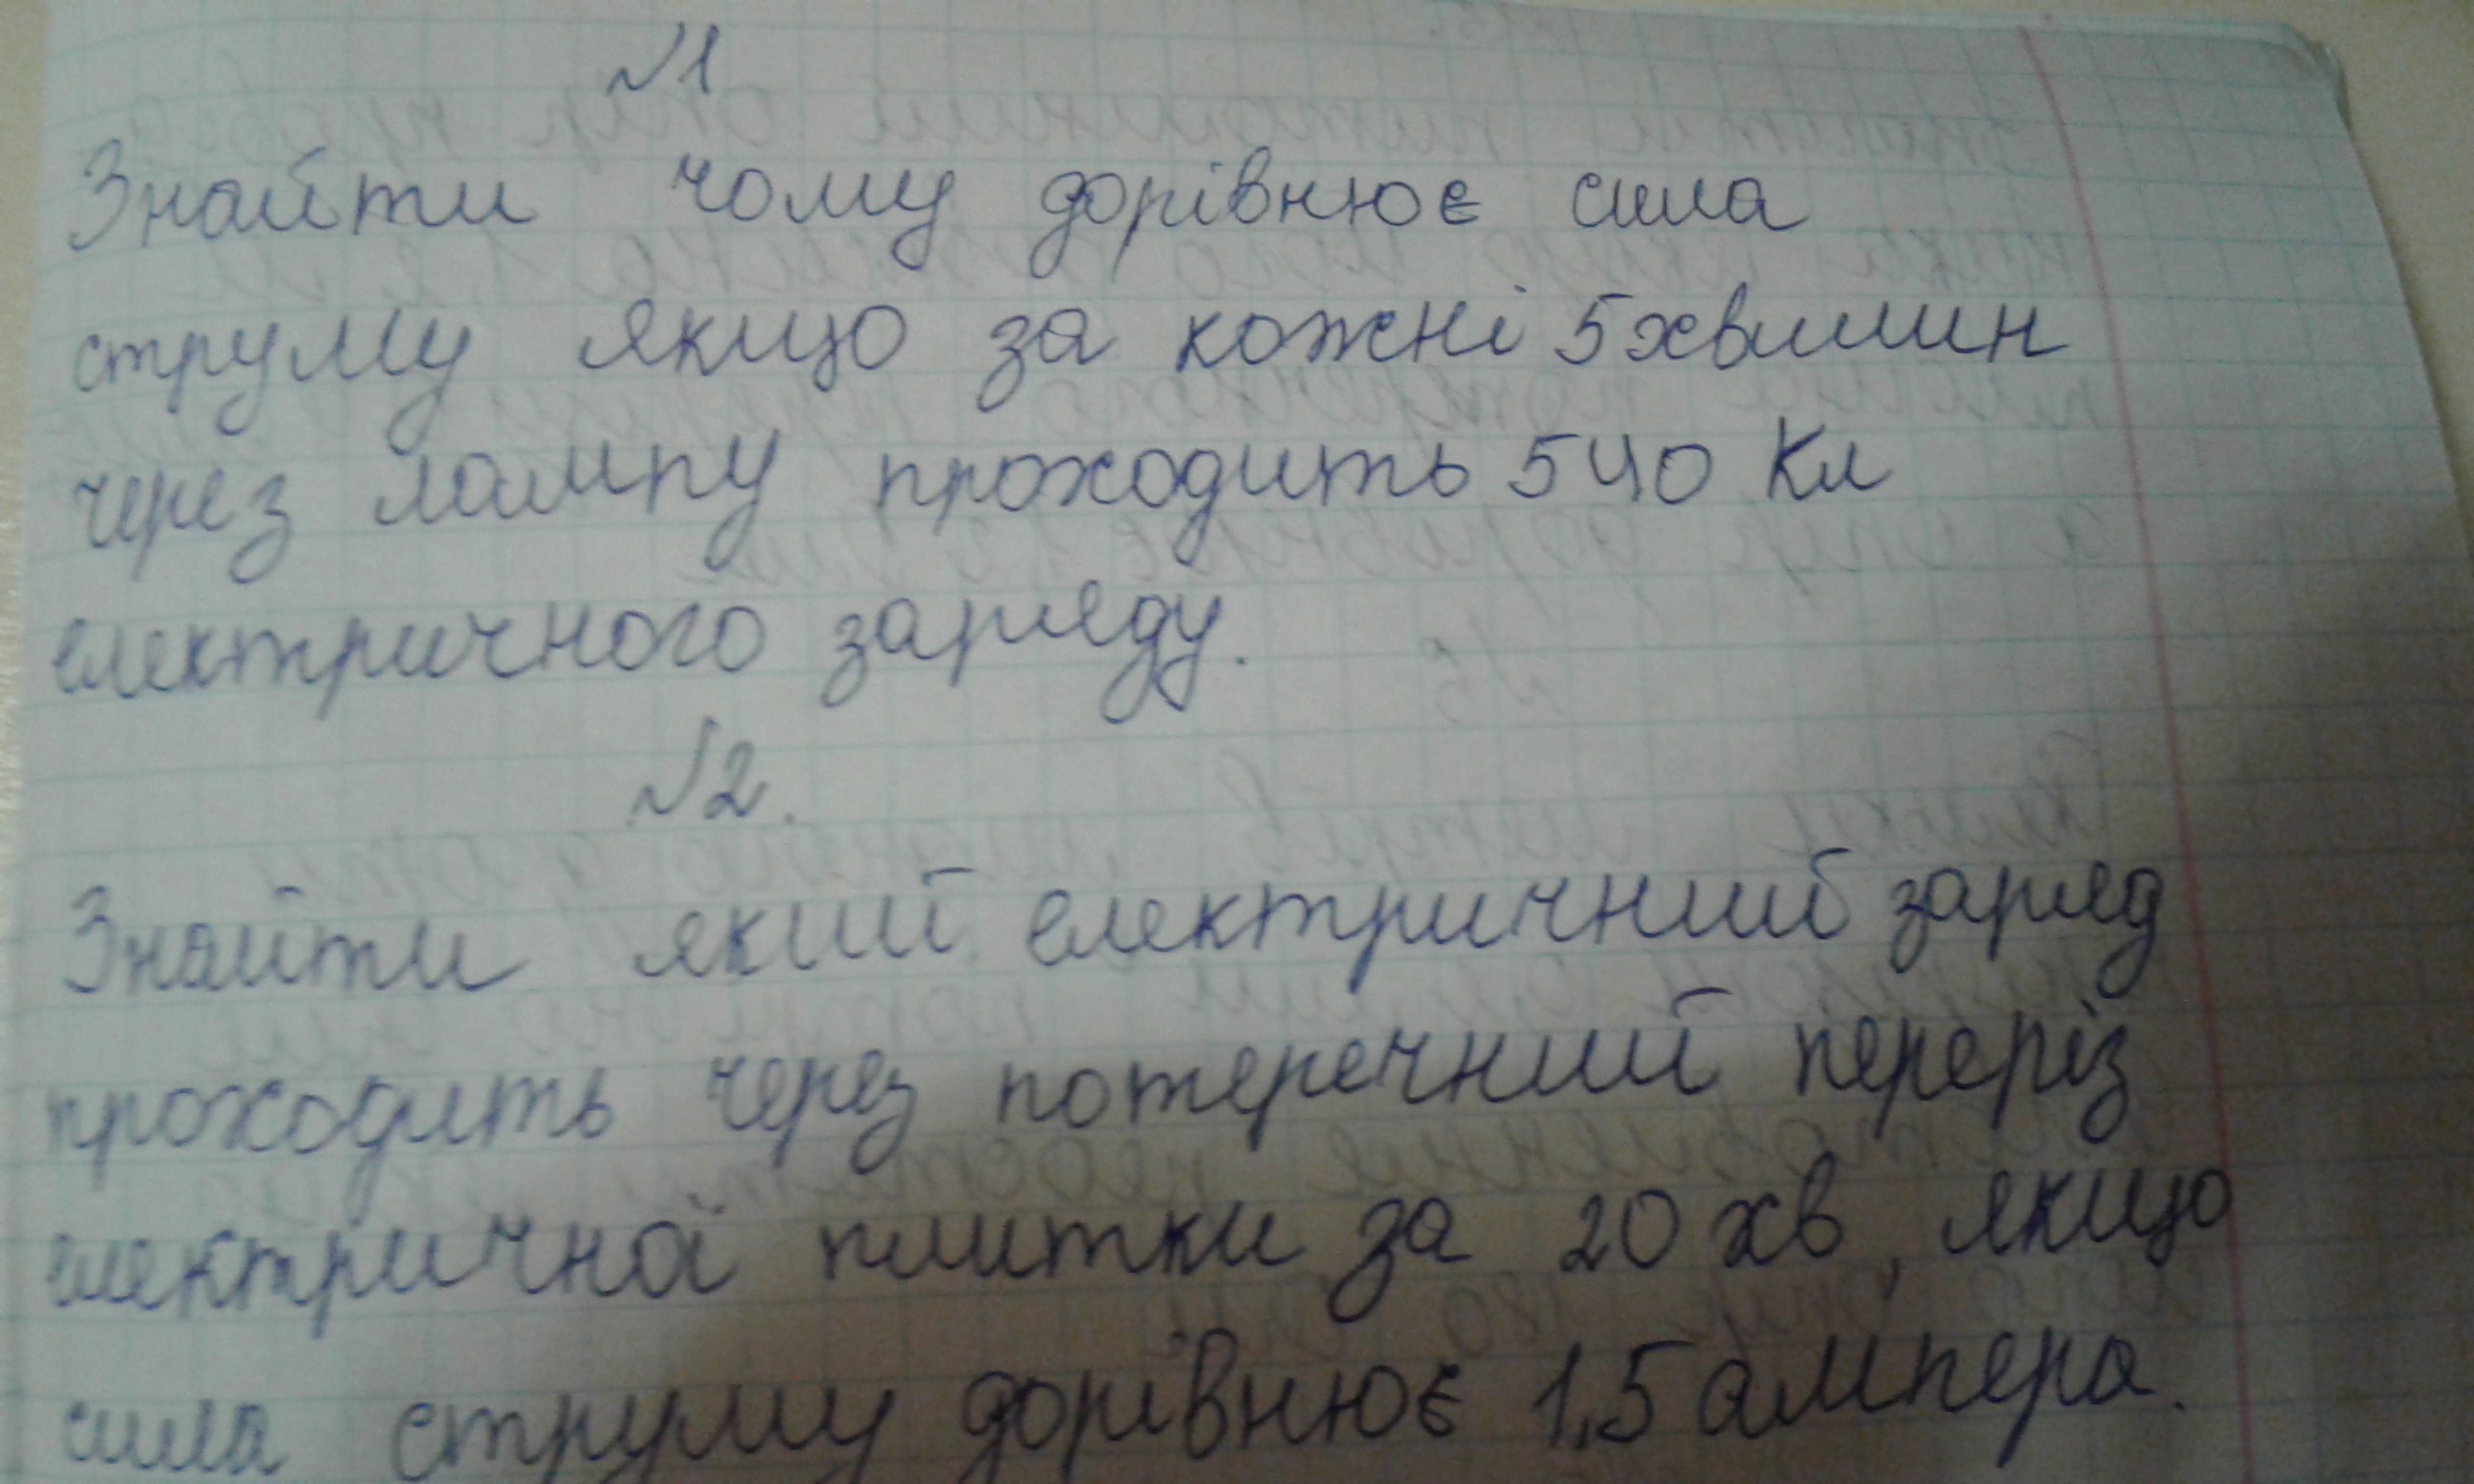 №1
Знайти чому дорівнює сила
струму якщо за кожні 5 хвилин
через лампу проходить 540 Кл
електричного заряду.
№2.
Знайти який електричний заряд
проходить через поперечний переріз
електричної плитки за 20 хв, якщо
сила струму дорівнює 1,5 ампера.